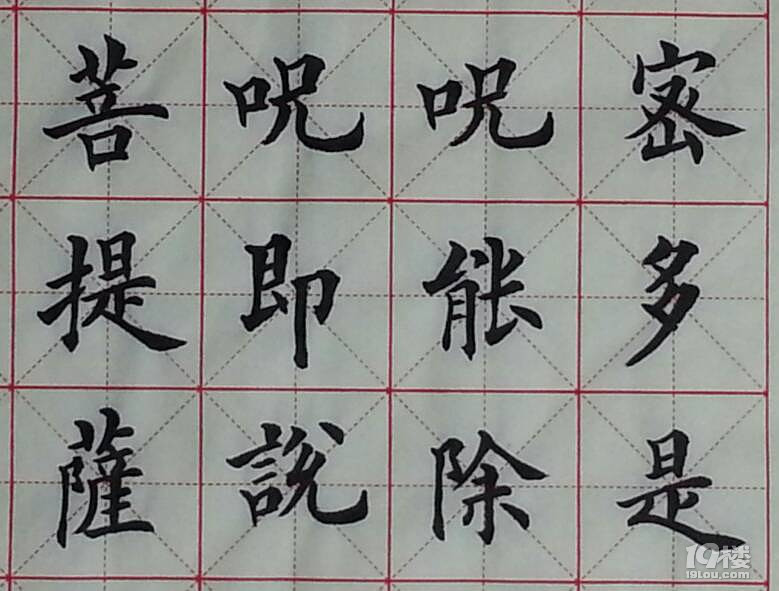 密多是
呪能除
呪即說
菩提薩
19楼
19lou.com